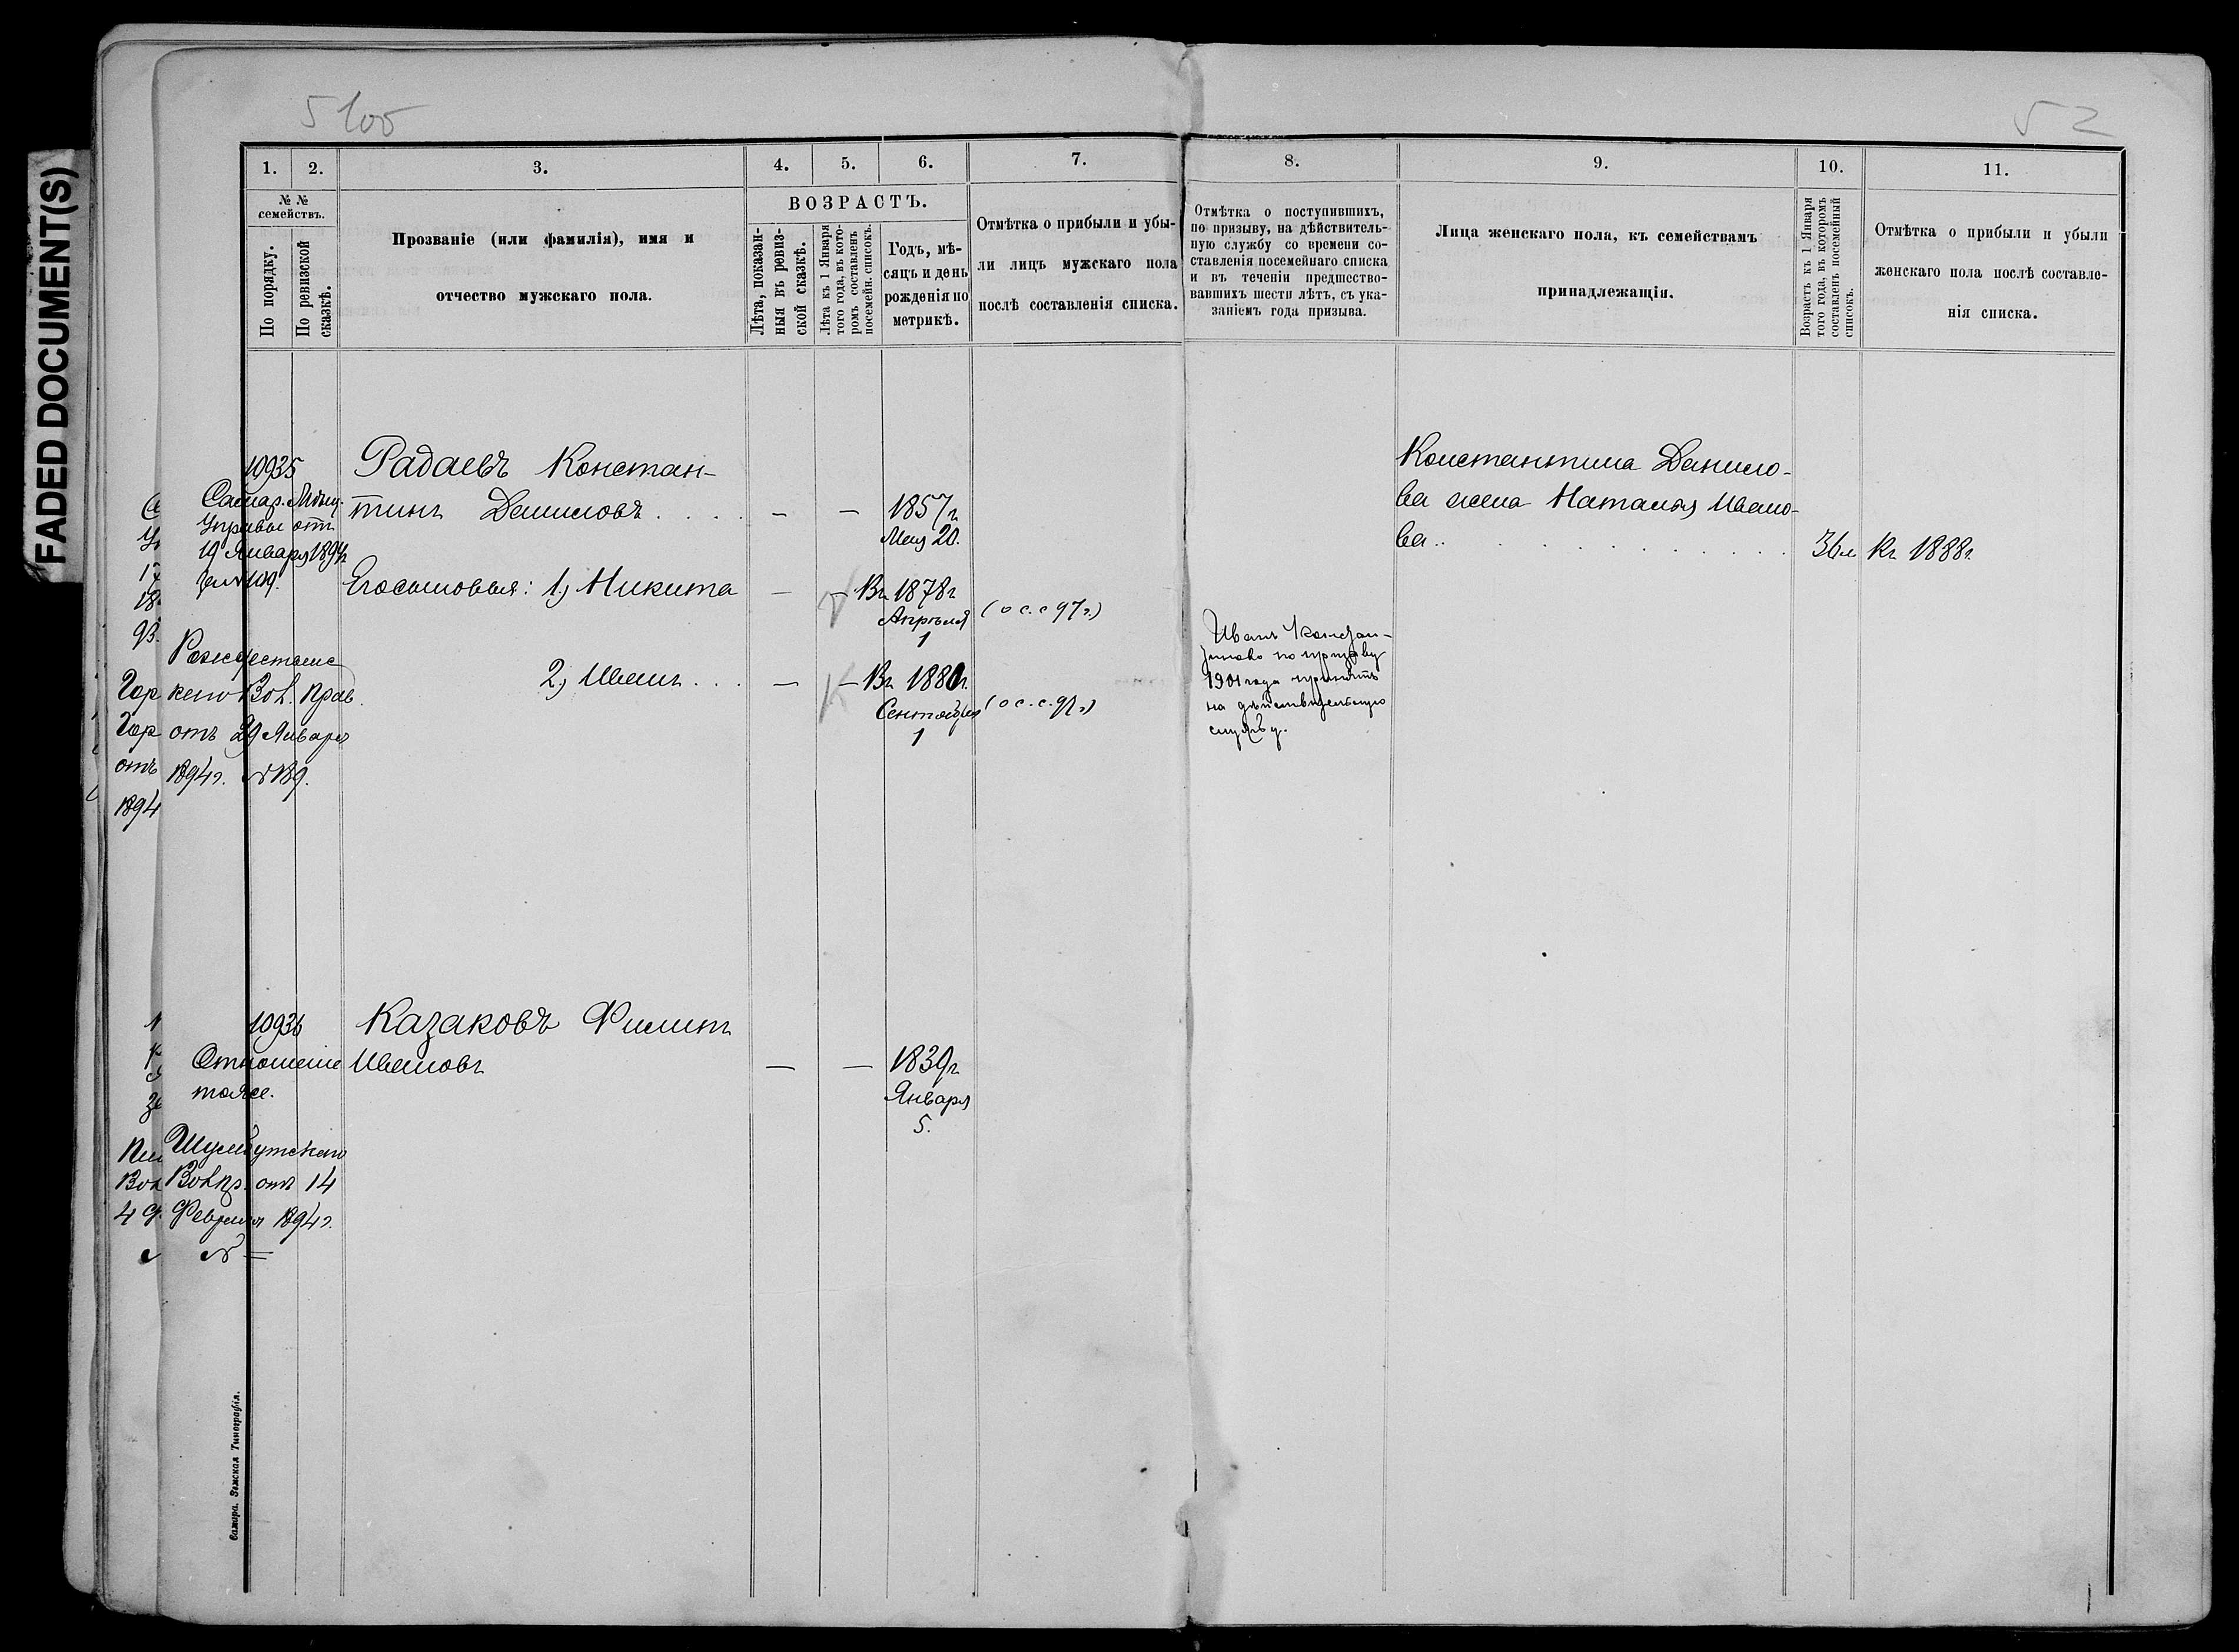 FADED DOCUMENT(S)
5 105
52
1.
2.
3.
4.
5.
6.
7.
8.
9.
10.
11.
№ №
семействъ.
По порядку.
По ревизской
сказкѣ.
Прозваніе (или фамилія), имя и
отчество мужскаго пола.
ВОЗРАСТЪ.
Лѣта, показан-
ныя въ ревиз-
ской сказкѣ.
Лѣта къ 1 Января
того года, въ кото-
ромъ составленъ
посемейн. списокъ.
Годъ, мѣ-
сяцъ и день
рожденія по
метрикѣ.
Отмѣтка о прибыли и убы-
ли лицъ мужскаго пола
послѣ составленія списка.
Отмѣтка о поступившихъ,
по призыву, на дѣйствитель-
ную службу со времени со-
ставленія посемейнаго списка
и въ теченіи предшество-
вавшихъ шести лѣтъ, съ ука-
заніемъ года призыва.
Лица женскаго пола, къ семействамъ
принадлежащія.
Возрастъ къ 1 Января
того года, въ которомъ
составленъ посемейный
списокъ.
Отмѣтка о прибыли и убыли
женскаго пола послѣ составле-
нія списка.
10935
Самар. Мѣщ.
Управы отъ
19 Января 1894г
за №109.
Рождественс
кого Вол. Прав.
отъ 29 Января
1894г. №139.
Радаевъ Констан-
тинъ Даниловъ . . . . — — 1857г.
Мая 20.
Егосыновья: 1, Никита — — Въ 1878г
Апрѣля (о с. с 97г.)
1
2, Иванъ . . . — — Въ 1880г.
Сентября (о с. с. 97г.)
1
Иванъ Констан-
тиновъ по призыву
1901 года принятъ
на дѣйствительную
службу.
Константина Данило-
ва жена Наталья Ивано-
ва . . . . . . . . . 36л Къ 1888г.
10936
Отношеніе
тоже.
Шумбутскаго
Вол пр. отъ 14
Февраля 1894г.
№ =
Казаковъ Филипъ
Ивановъ — — 1839г.
Января
5.
17
18
93.
Гор
Гор
отъ
1894
Вол
Самара. Земская Типографія.